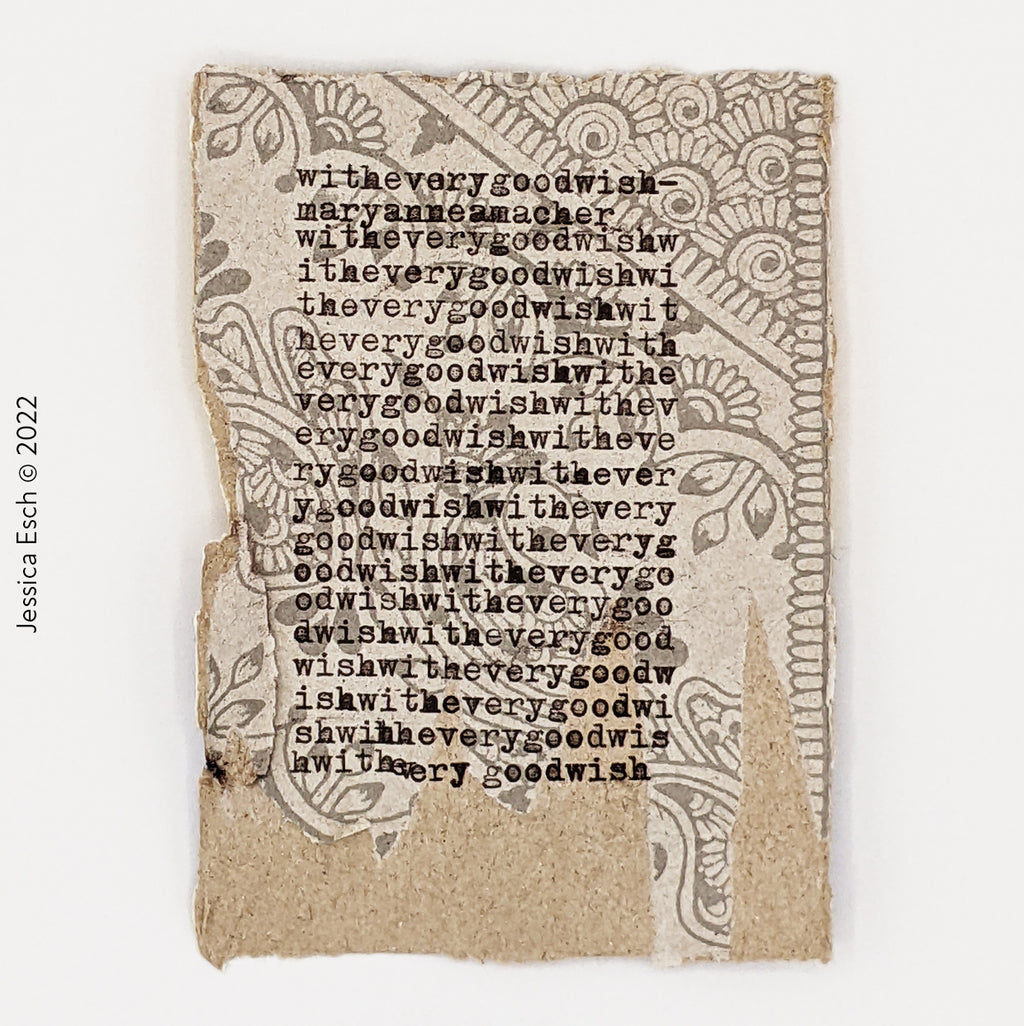 witheverygoodwish-
maryanneamacher
witheverygoodwishw
itheverygoodwishwi
theverygoodwishwit
heverygoodwishwith
everygoodwishwithe
verygoodwishwithev
erygoodwishwitheve
rygoodwishwithever
ygoodwishwithevery
goodwishwitheveryg
oodwishwitheverygo
odwishwitheverygoo
dwishwitheverygood
wishwitheverygoodw
ishwitheverygoodwi
shwihheverygoodwis
hwithevery goodwish
Jessica Esch © 2022